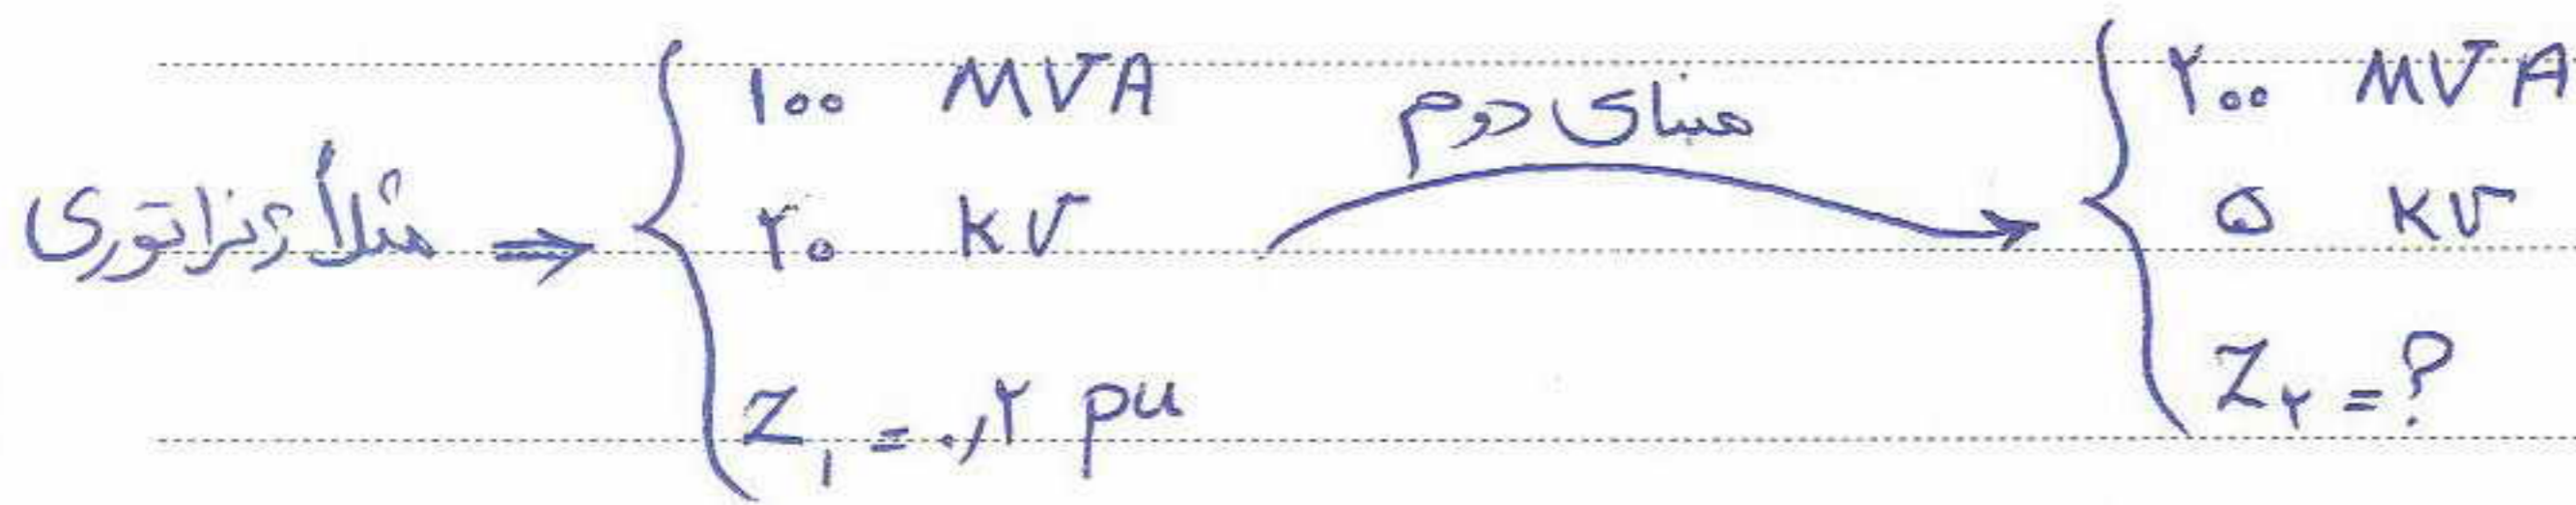 مثلاً ژنراتوری ⇒ { ۱۰۰ MVA
۲۰ kV
Z۱ = ۰٫۲ pu
مبنای دوم
۲۰۰ MVA
۵ kV
Z۲ = ?